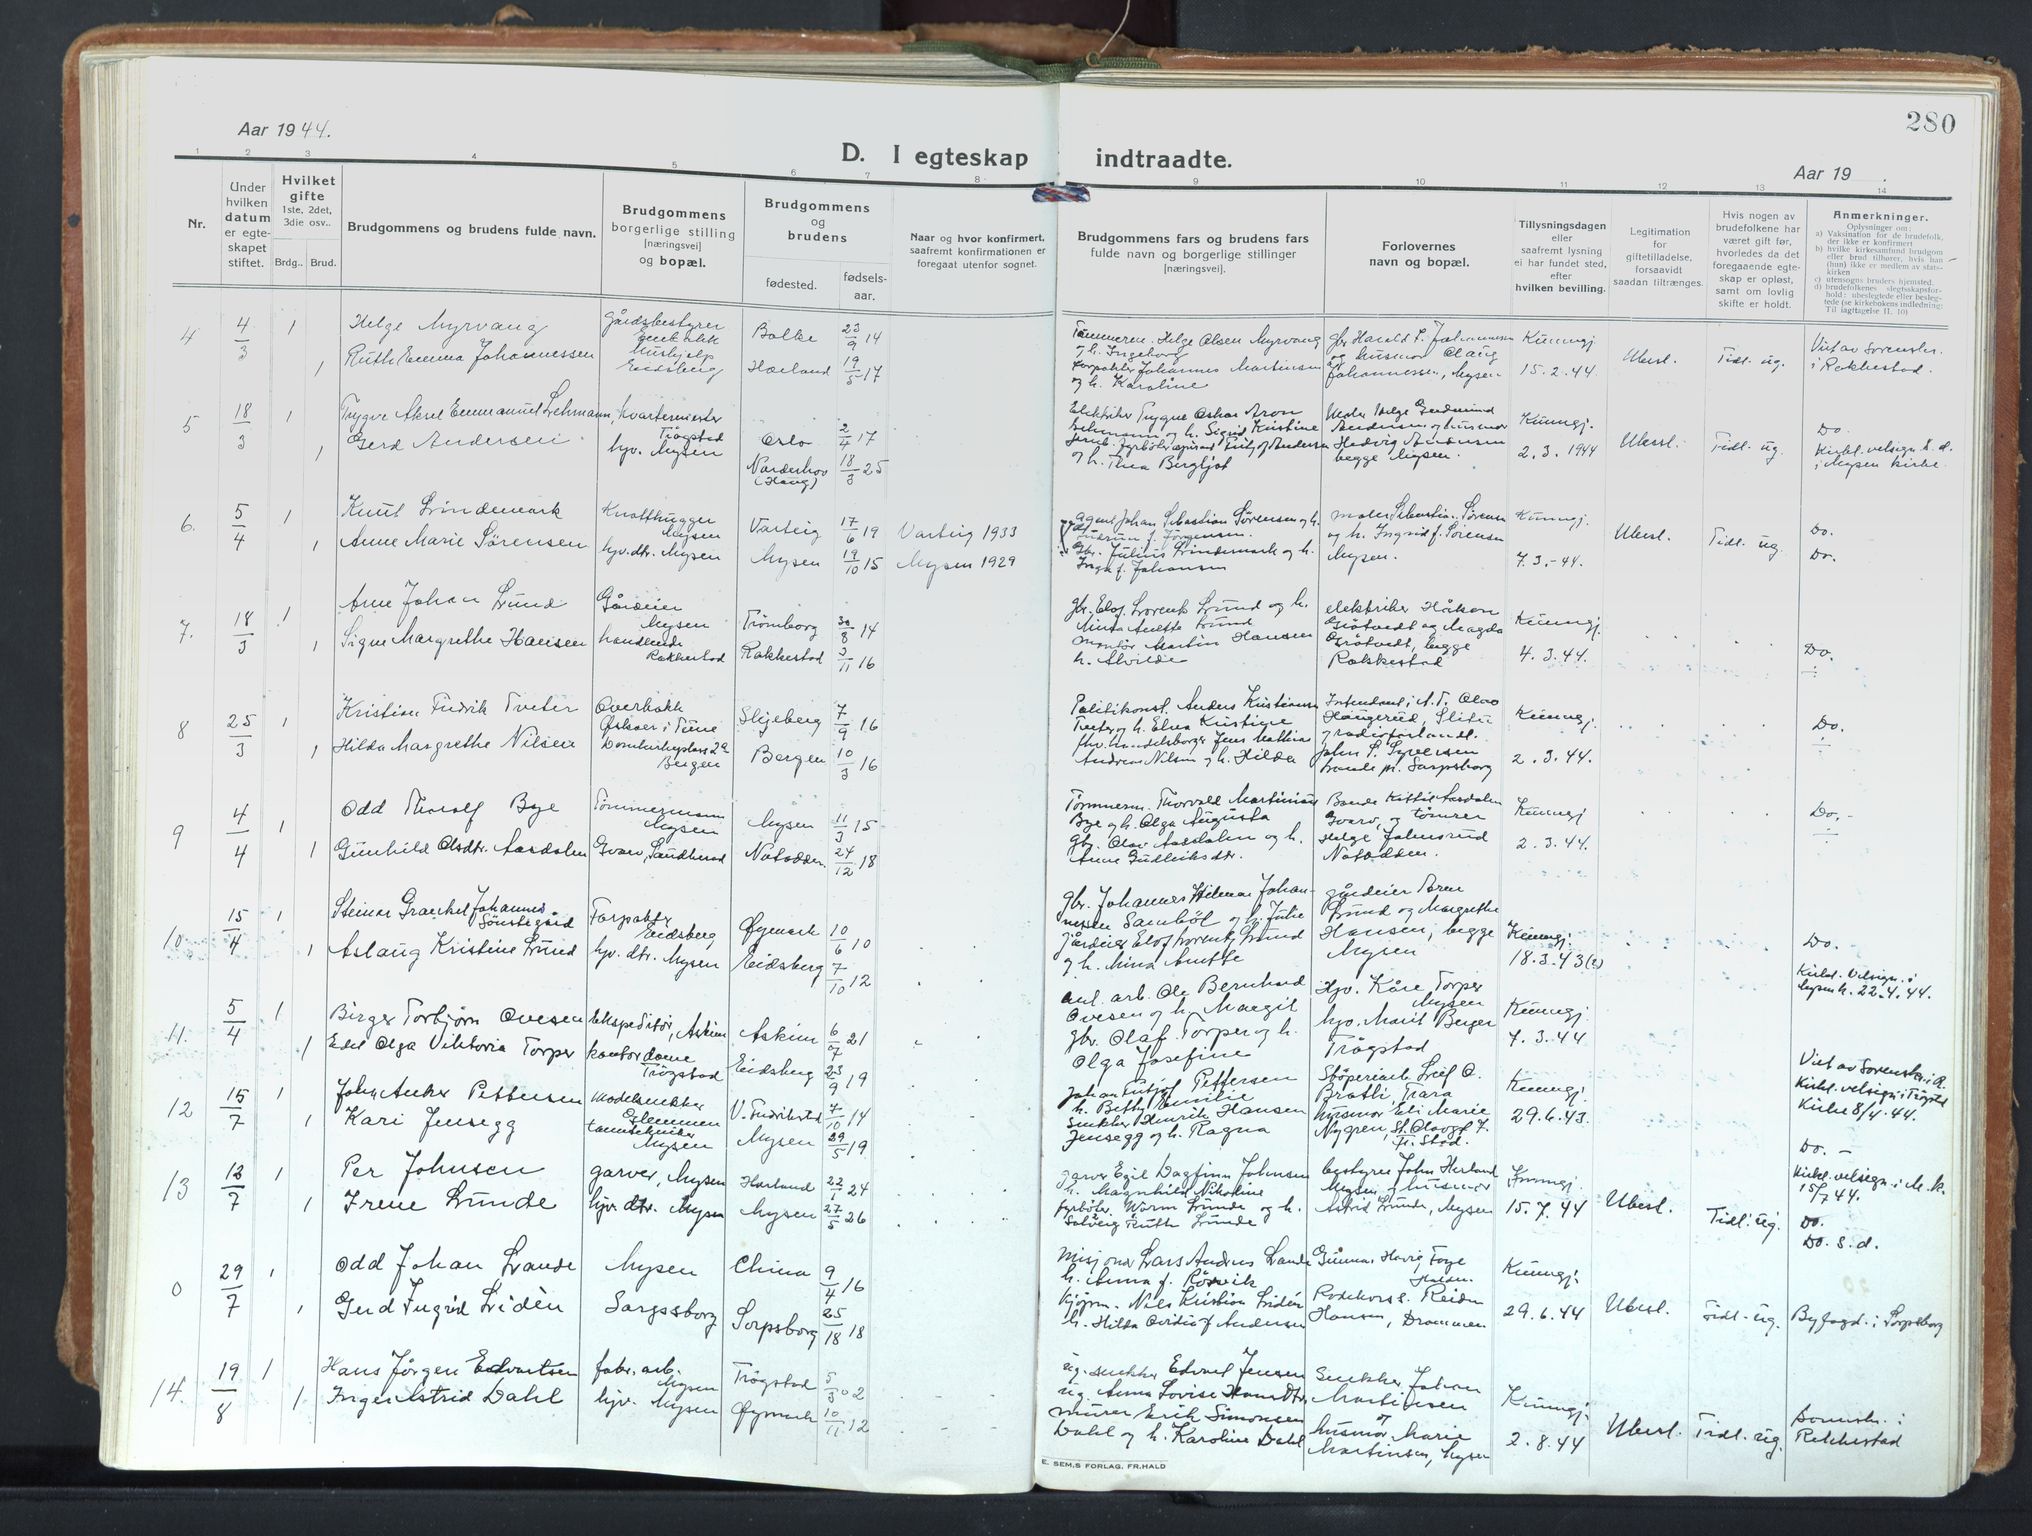 280
Aar 1944.
D. I egteskap indtraadte.
Aar 19 .
1 2 3 4 5 6 7 8 9 10 11 12 13 14
Nr.
Under
hvilken
datum
er egte-
skapet
stiftet.
Hvilket
gifte
1ste, 2det,
3die osv..
Brdg.. Brud.
Brudgommens og brudens fulde navn.
Brudgommens
borgerlige stilling
[næringsvei]
og bopæl.
Brudgommens
og
brudens
fødested.
fødsels-
aar.
Naar og hvor konfirmert,
saafremt konfirmationen er
foregaat utenfor sognet.
Brudgommens fars og brudens fars
fulde navn og borgerlige stillinger
[næringsvei].
Forlovernes
navn og bopæl.
Tillysningsdagen
eller
saafremt lysning
ei har fundet sted,
efter
hvilken bevilling.
Legitimation
for
giftetilladelse,
forsaavidt
saadan tiltrænges.
Hvis nogen av
brudefolkene har
været gift før,
hvorledes da det
foregaaende egte-
skap er opløst,
samt om lovlig
skifte er holdt.
Anmerkninger.
Oplysninger om:
a) Vaksination for de brudefolk,
der ikke er konfirmert
b) hvilke kirkesamfund brudgom
eller brud tilhører, hvis han
(hun) ikke er medlem av stats-
kirken
c) utensogns bruders hjemsted.
d) brudefolkenes slegtsskapsfor-
hold: ubeslegtede eller besleg-
tede (se kirkebokens indledning:
Til iagttagelse II. 10)
4 4/3 1 Helge Myrvang Gårdsbestyrer Balke 23/9 14
1 Ruth Emma Johannessen Eidsberg Hærland 19/5 17
Tømmerm. Helge Olsen Myrvang
og h. Ingeborg
Forpakter Johannes Martinsen
og h. Karoline
Johannessen, Mysen
Kunngj.
15.2.44.
Ubesl. Tidl. ug.
Viet av Sorenskr.
i Rakkestad.
5 18/3 1 Trygve Aksel Emmanuel Lehmann, kvartermester
Trøgstad Oslo 2/4 17
1 Gerd Andersen hjv. Mysen Norderhov (Haug) 18/3 25
Elektriker Trygve Oskar Aron
Lehmann og h. Sigrid Kristine
og h. Thea Bergljot
Hedvig Andersen
begge Mysen.
Kunngj.
2.3.1944 Ubesl. Tidl. ug.
Do.
Kirkl. velsign. s. d.
i Mysen kirke.
6. 5/4 1 Knut Lindemark Knotthugger
Mysen Varteig 17/6 19 Varteig 1933
1 Anne Marie Sørensen hjv. dtr. Mysen Mysen 19/10 15 Mysen 1929
Agent Johan Sebastian Sørensen og h.
Gudrun f. Jørgensen.
Gbr. Julius Lindemark og h.
Inga f. Johansen
maler Sebastian Sørensen
og h. Ingrid f. Sørensen
Mysen.
Kunngj.
7.3.-44.
Ubesl. Tidl. ug.
Do.
Do.
7. 18/3 1 Arne Johan Lund Gårdeier
Mysen Trømborg 30/8 14
1 Signe Margrethe Hansen handlende
Rakkestad Rakkestad 3/11 16
gbr. Elof Lorents Lund og h.
Mina Anette Lund
montør Martin Hansen
h. Alvilde
elektriker Håkon
Grøtvedt og Magda
Grøtvedt, begge
Rakkestad
Kunngj.
4.3.44.
Do.
8 25/3 1 Kristian Fredrik Tveter Overkokk
i Tune Skjeberg 7/9 16
1 Hilda Margrethe Nilsen Domkirkeplass 2a
Bergen Bergen 10/3 16
Politikonst. Anders Kristiansen
Tveter og h. Elna Kristine
Andreas Nilsen og h. Hilda
John S. Syversen
Kunngj.
2.3.44.
Do.
9 4/4 1 Odd Thoralf Bye Tømmermann
Mysen Mysen 11/3 15
1 Gunhild Olsdtr. Aasdalen Gvarv, Sandherad Notodden 24/12 18
Tømmerm. Thorvald Martinius
Bye og h. Olga Augusta
gbr. Olav Aasdalen og h.
Anne Gudleiksdtr.
Bonde Kittil Aasdalen
Gvarv, og tømrer
Helge Johnsrud
Notodden.
Kunngj.
2.3.44.
Do.-
10 15/4 1 Steinar Grankel Johannes
Sønstegård Forpakter
Eidsberg Øymark 10/6 10
1 Aslaug Kristine Lund hjv. dtr. Mysen Eidsberg 7/10 12
gbr. Johannes Hilmar Johan-
nessen Sambøl og h. Julie
gårdeier Elof Lorents Lund
og h. Mina Anette
gårdeier Arne
Lund og Margrethe
Hansen, begge
Mysen
Kunngj.
18.3.43(?)
Do.
Kirkl. velsign. i
Mysen k. 22.4.44.
11. 5/4 1 Birger Torbjørn Ovesen Ekspeditør, Askim Askim 6/7 21
1 Edel Olga Viktoria Torper kontordame
Trøgstad Eidsberg 23/9 19
anl. arb. Ole Bernhard
Ovesen og h. Margit
gbr. Olaf Torper og h.
Olga Josefine
Hjv. Kåre Torper
Mysen
hjv. Marit Berger
Trøgstad
Kunngj.
7.3.44
Viet av Sorenskr. i R.
Kirkl. velsign. i Trøgstad
Kirke 8/4.44.
12 15/7 1 John Anker Pettersen Modelsnekker
Glemmen V. Fredrikstad 7/10 14
1 Kari Jensegg tanntekniker
Mysen Mysen 29/5 19
Johan Fritjof Pettersen
h. Betty Emilie
Snekker Henrik Hansen
Jensegg og h. Ragna
Støperiarb. Leif O.
Bratli, Trara
husmor Eli Marie
Nygren, St. Olavsgt 7.
Fr. Stad.
Kunngj.
29.6.43.
Do. -
Kirkl. velsign. i M. k.
15/7 44.
13 12/7 1 Per Johnsen garver, Mysen Hærland 22/1 24
1 Irene Lunde hjv. dtr. Mysen Mysen 27/5 26
garver Egil Dagfinn Johnsen
h. Magnhild Nikoline
fyrbøter Warm Lunde og h.
Solveig Ruth Lunde
bestyrer John Herland
Mysen og husmor
Astrid Lunde, Mysen
Kunngj.
15.7.44 Ubesl. Tidl. ug.
Do.
Do. s.d.
0 29/7 1 Odd Johan Lande Mysen China 9/4 16
1 Gerd Ingrid Lidén Sarpsborg Sarpsborg 25/18 18
Misjonær Lars Andreas Lande
h. Anna f. Rørvik
Kjøpm. Nils Kristian Lidén
h. Hilda Ovidia f Andersen
Gunnar Havig Foge
Halden.
Reidar
Hansen, Drammen
Kunngj.
29.6.44 Ubesl. Tidl. ug. Byfogd. i Sarpsborg
14. 19/8 1 Hans Jørgen Edvartsen fabr. arb.
Mysen Trøgstad 5/3 02
1 Inger Astrid Dahl hjv. Mysen Øymark 10/11 12
ug. snekker Edvard Jensen
ug. Anna Lovise Hansdtr.
murer Erik Simonsen
Dahl og h. Karoline Dahl
Snekker Johan
Martinsen
og
husmor Marie
Martinsen, Mysen
Kunngj.
2.8.44 Ubesl. Tidl. ug.
Sorenskr. i
Rakkestad
E. SEM,S FORLAG, FR.HALD